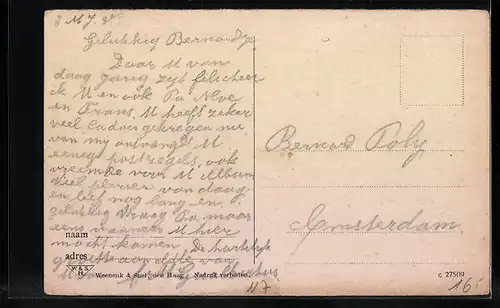 J M J
Gelukkig Bernardje
Daar U van
daag jarig zyt feliciteer
ik U en ook Pa Moe
en Frans. U heeft zeker
veel Cadoos gekregen nu
van my ontvangt U
postzegels, ook
vreemde voor U Album
Veel plezier van daag
en leef nog lang en
gelukkig Vraag Pa maar
eens wanneer U hier
mocht komen. De hartelyk
groeten
Bernard Poly
Amsterdam
naam
adres
W&S
H
Weenenk & Snel, den Haag - Nadruk verboden.
C 27509
117
16.-